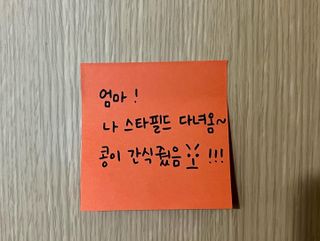 엄마!
나 스타필드 다녀옴~
콩이 간식줬음 !!!